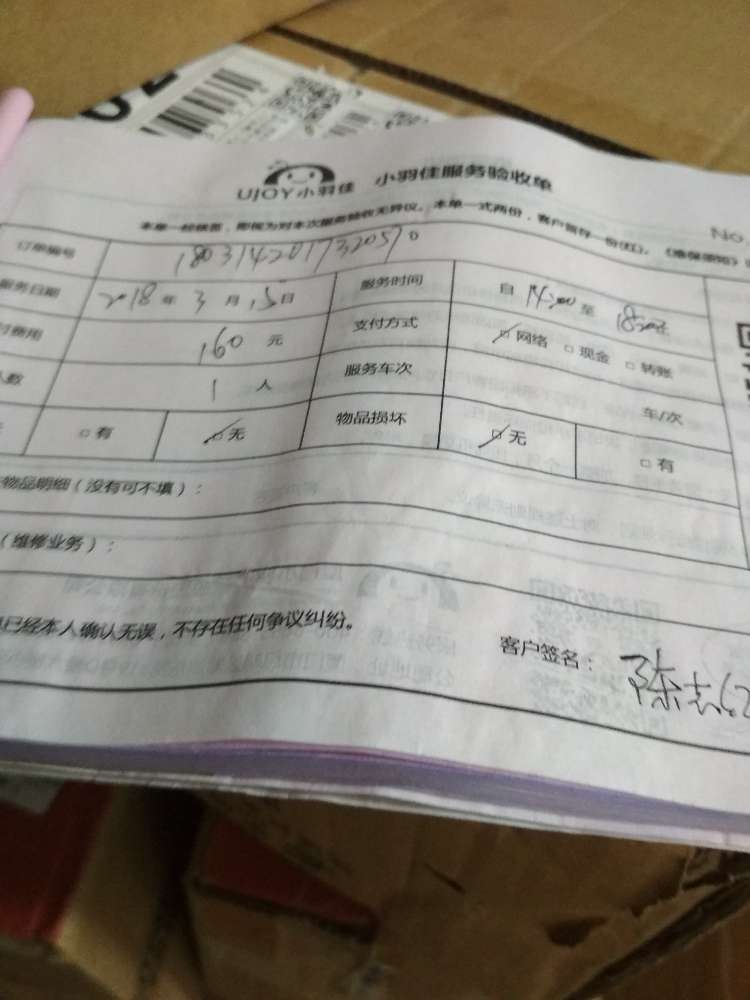 UJOY小羽佳 小羽佳服务验收单
No
本单一经核签，即视为对本次服务验收无异议。本单一式两份，客户留存一份(红)。
订单编号 180314201732059 0
服务日期 2018年3月15日 服务时间 自14:00至18:00
费用 160元 支付方式 网络 现金 转账
人数 1人 服务车次 车/次
有 无 物品损坏 无 有
物品明细（没有可不填）：
（维修业务）：
已经本人确认无误，不存在任何争议纠纷。
客户签名： 陈志